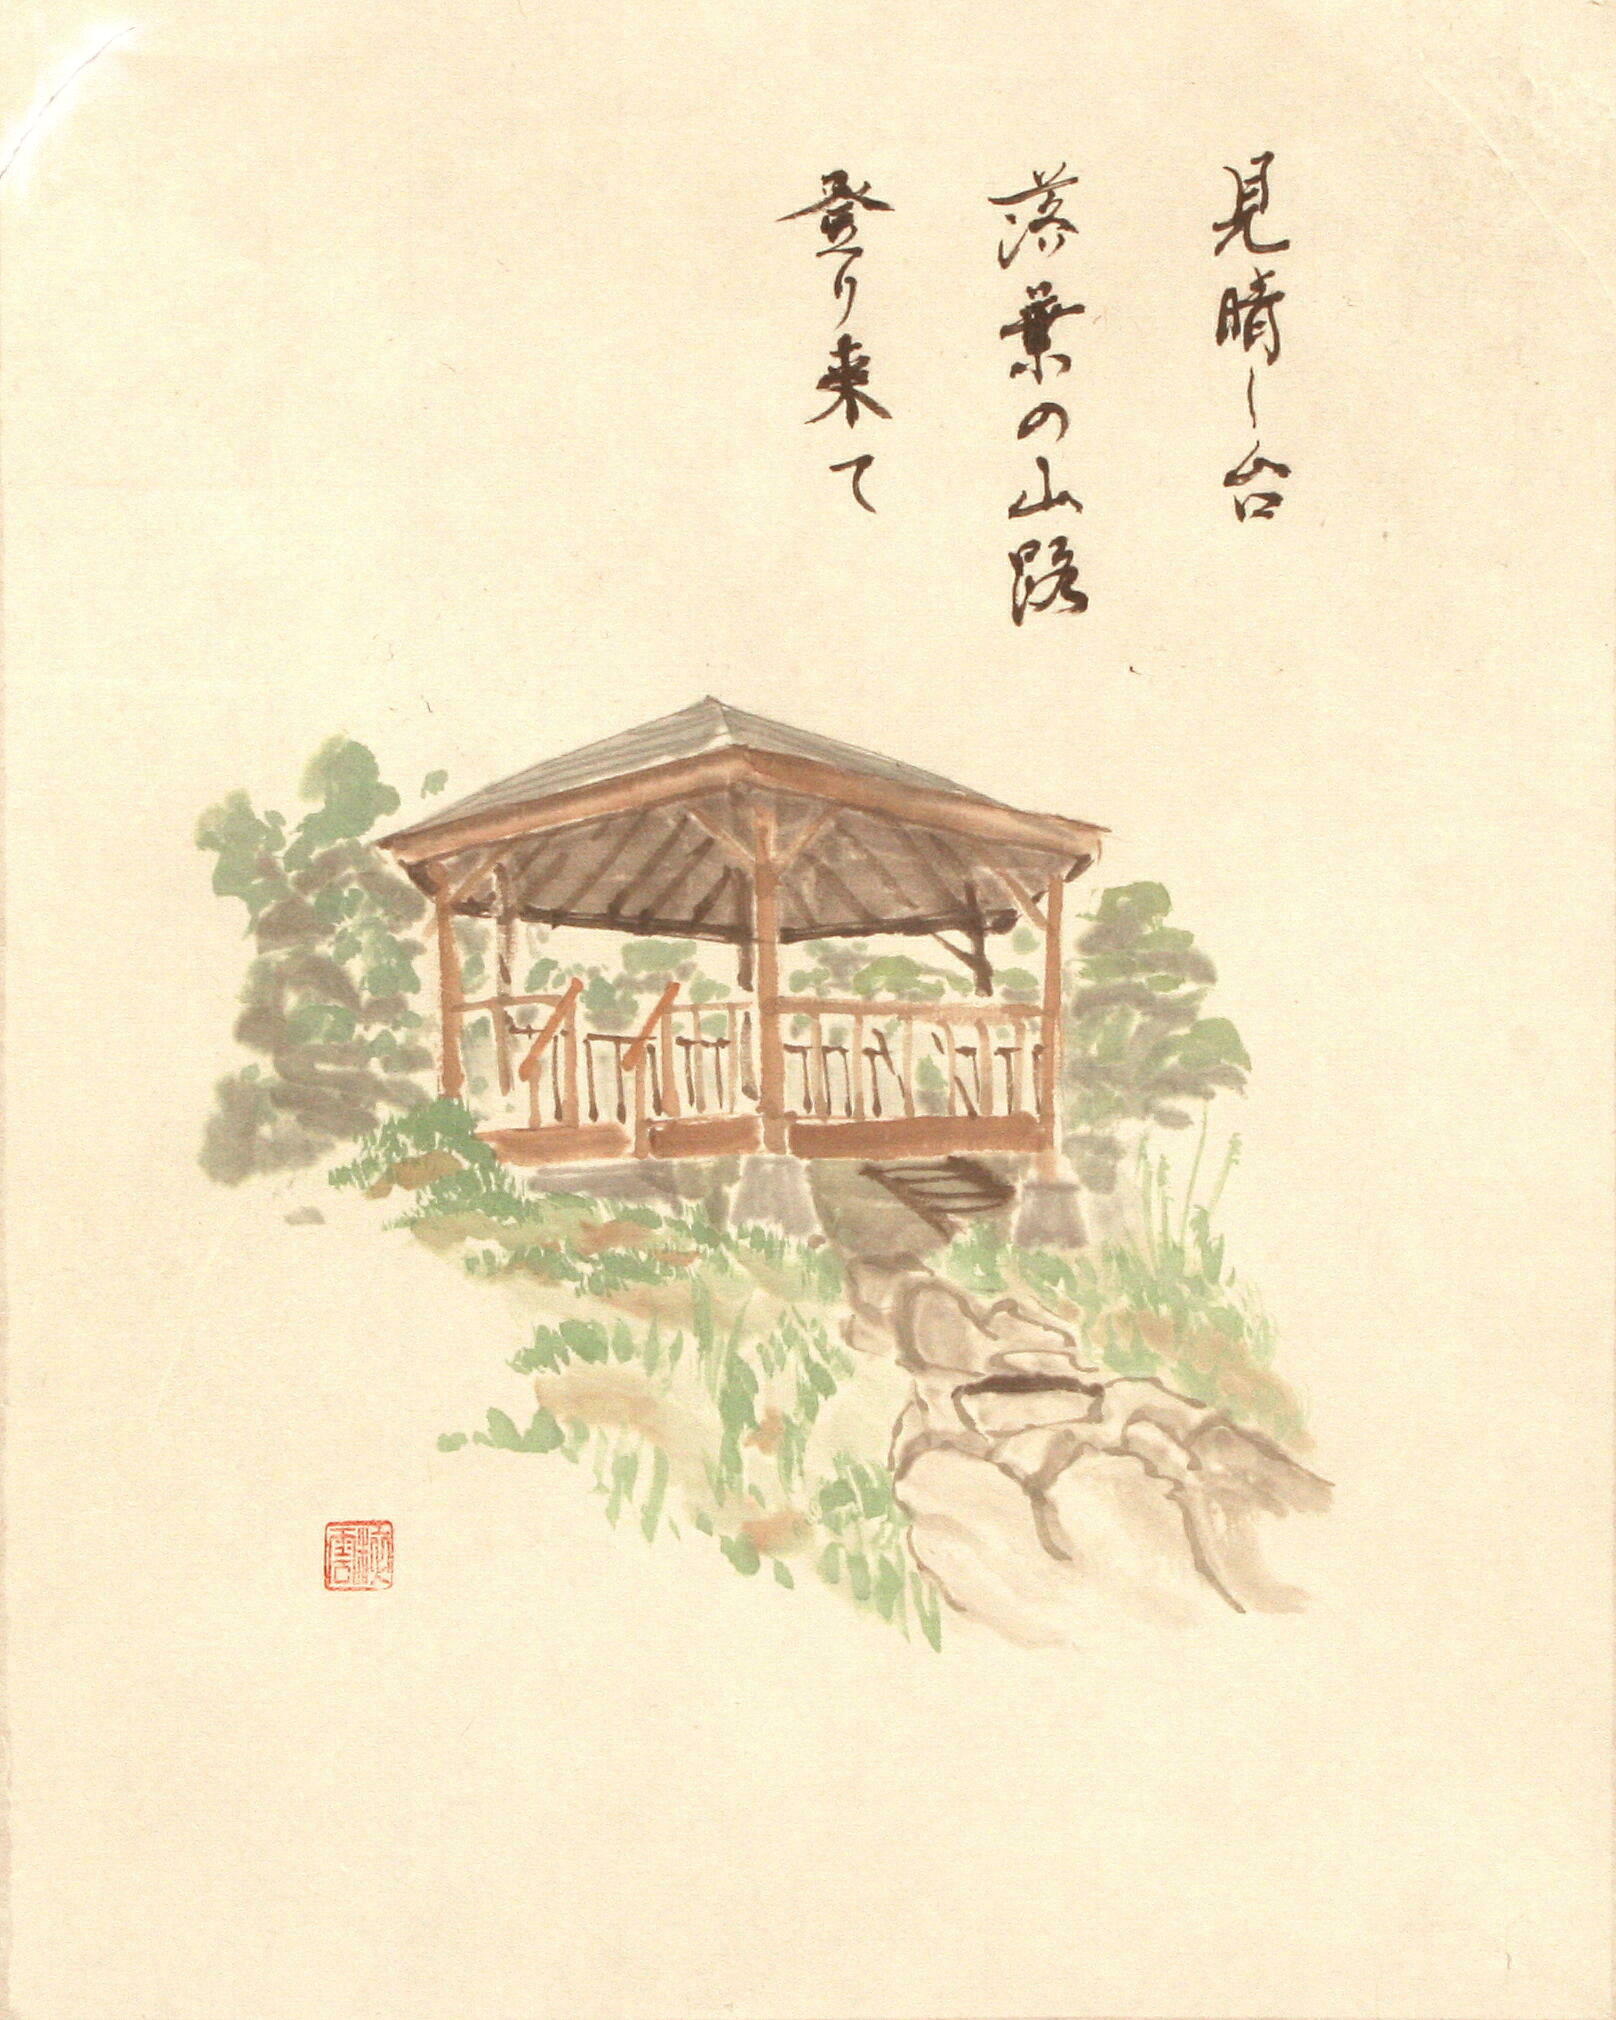 見晴し台
落葉の山路
登り来て